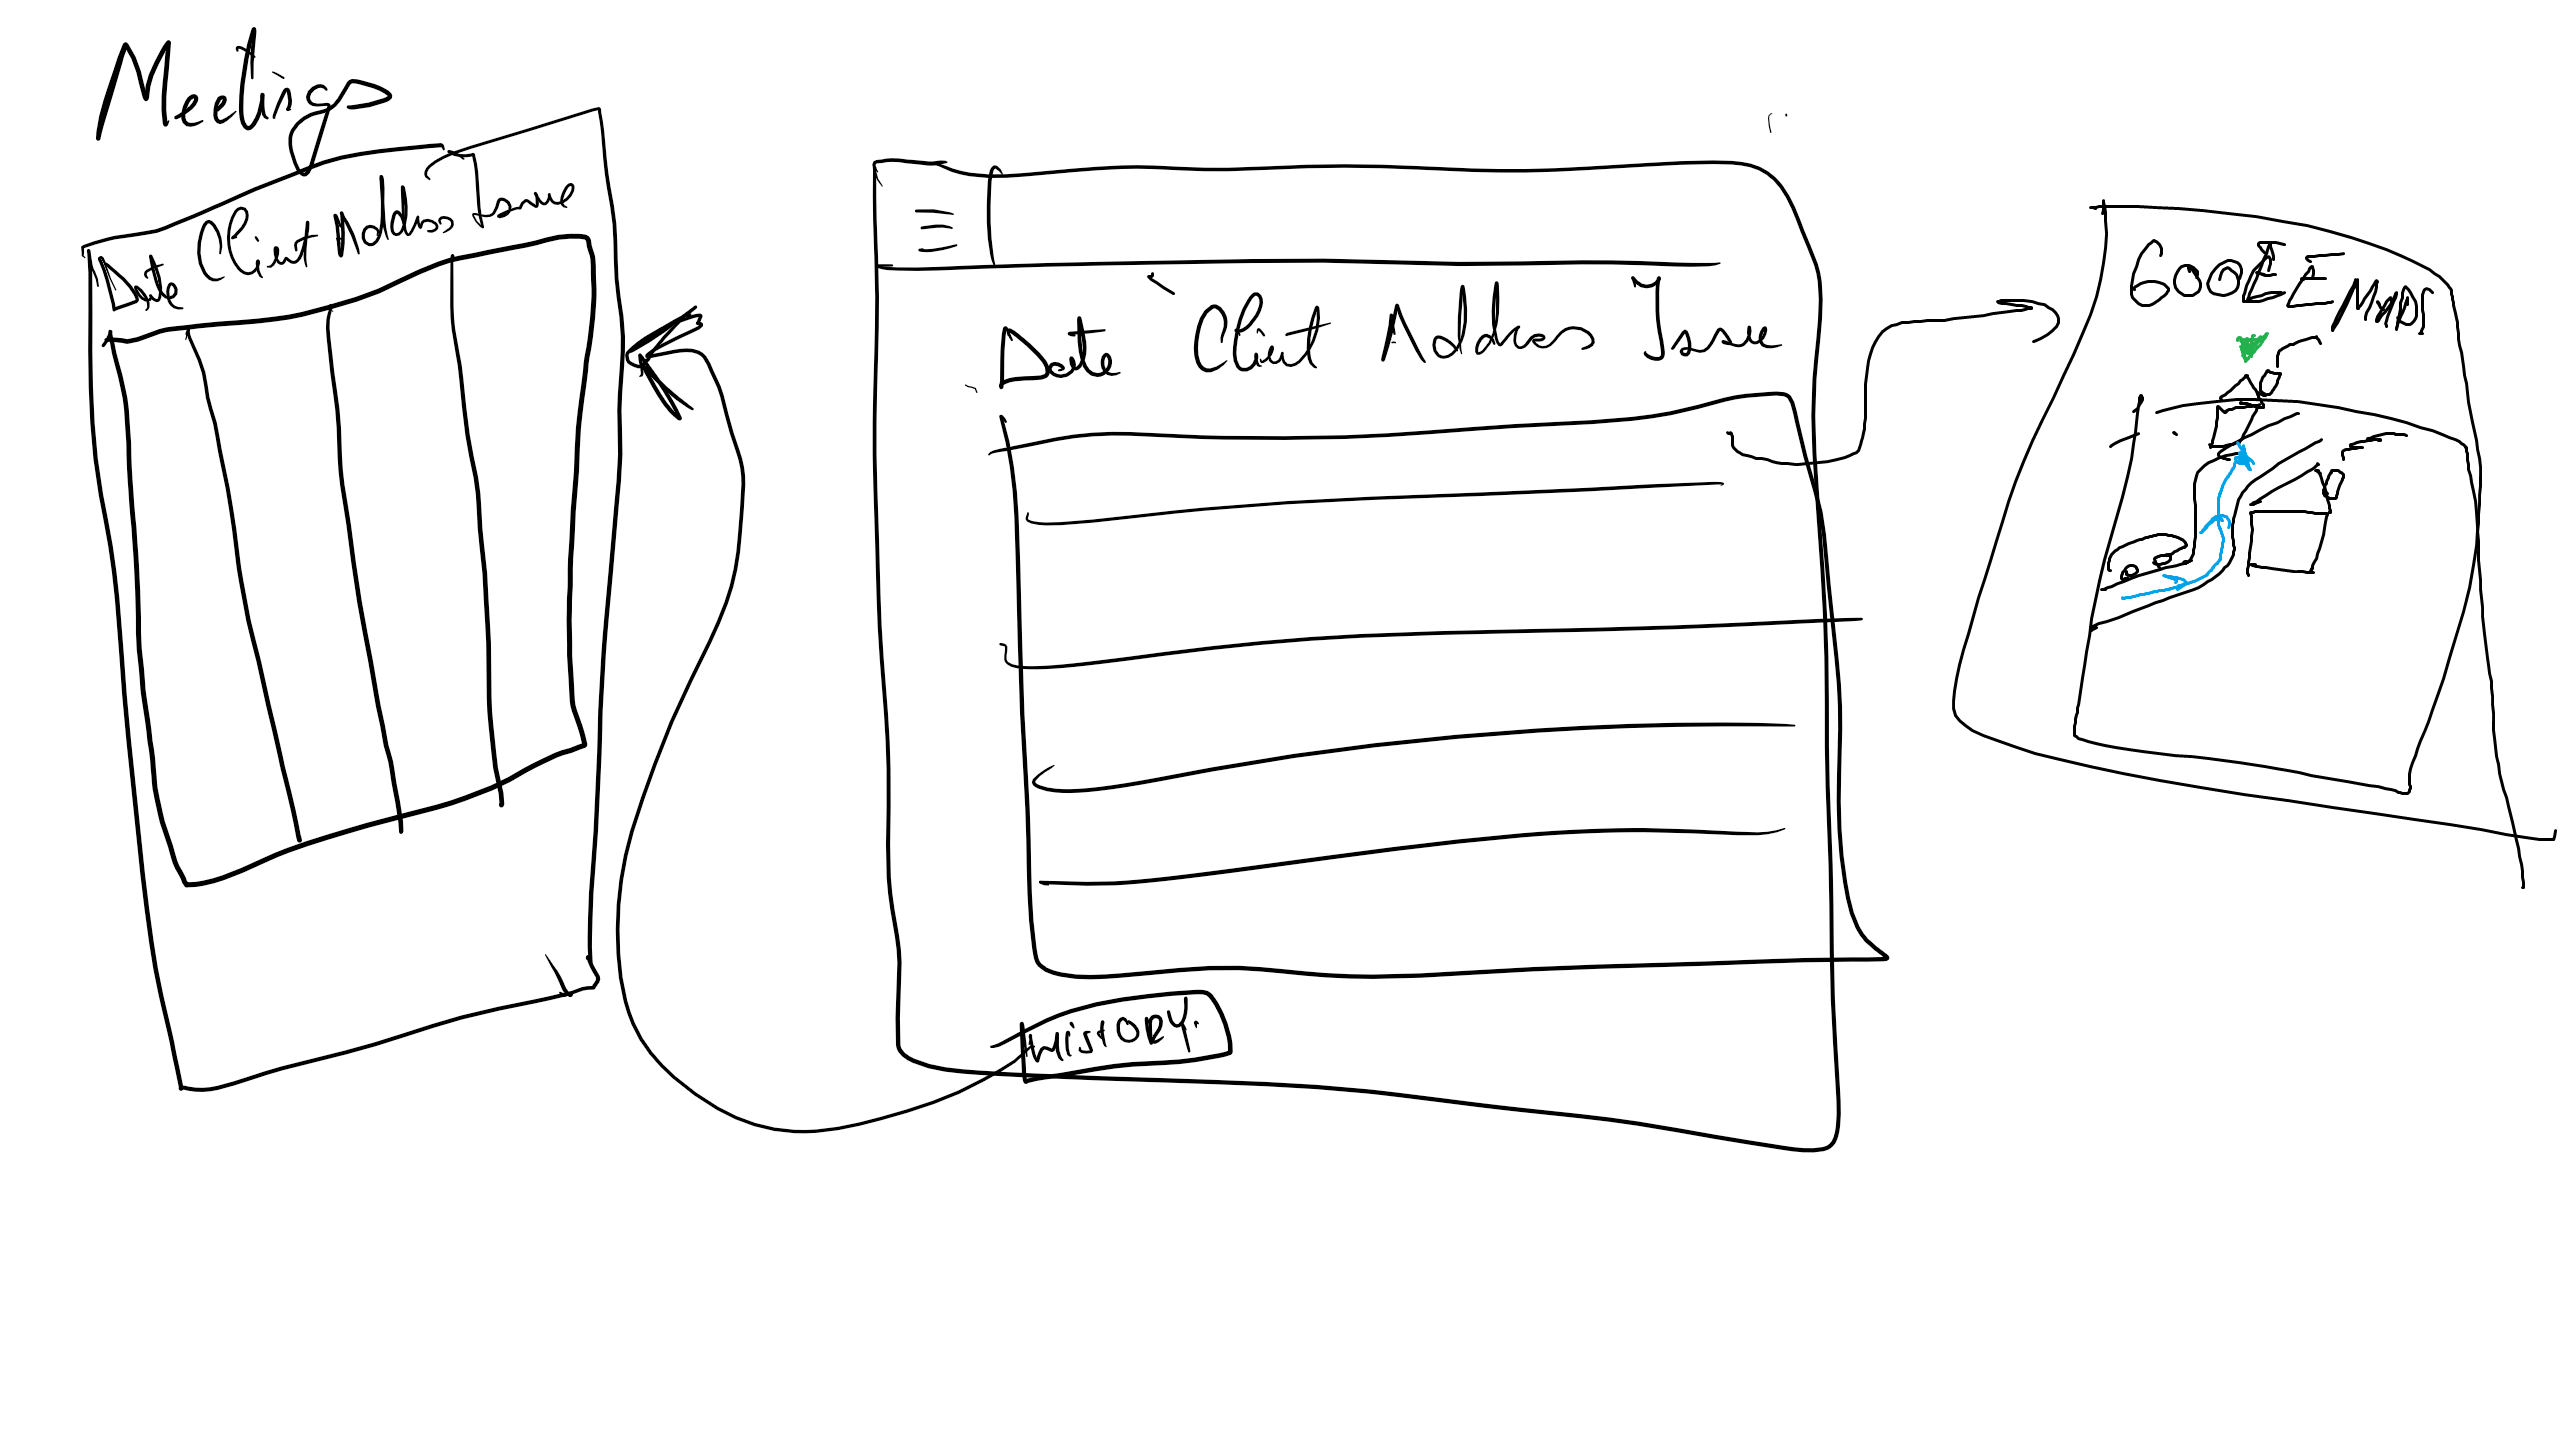 Meetings
Date Client Address Issue
Date Client Address Issue
HISTORY.
GOOGLE MAPS